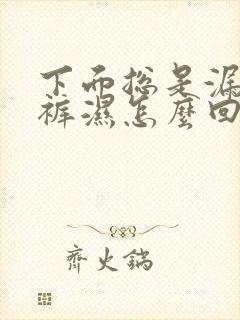 下而总是漏
裤濕怎麼回
齊火鍋